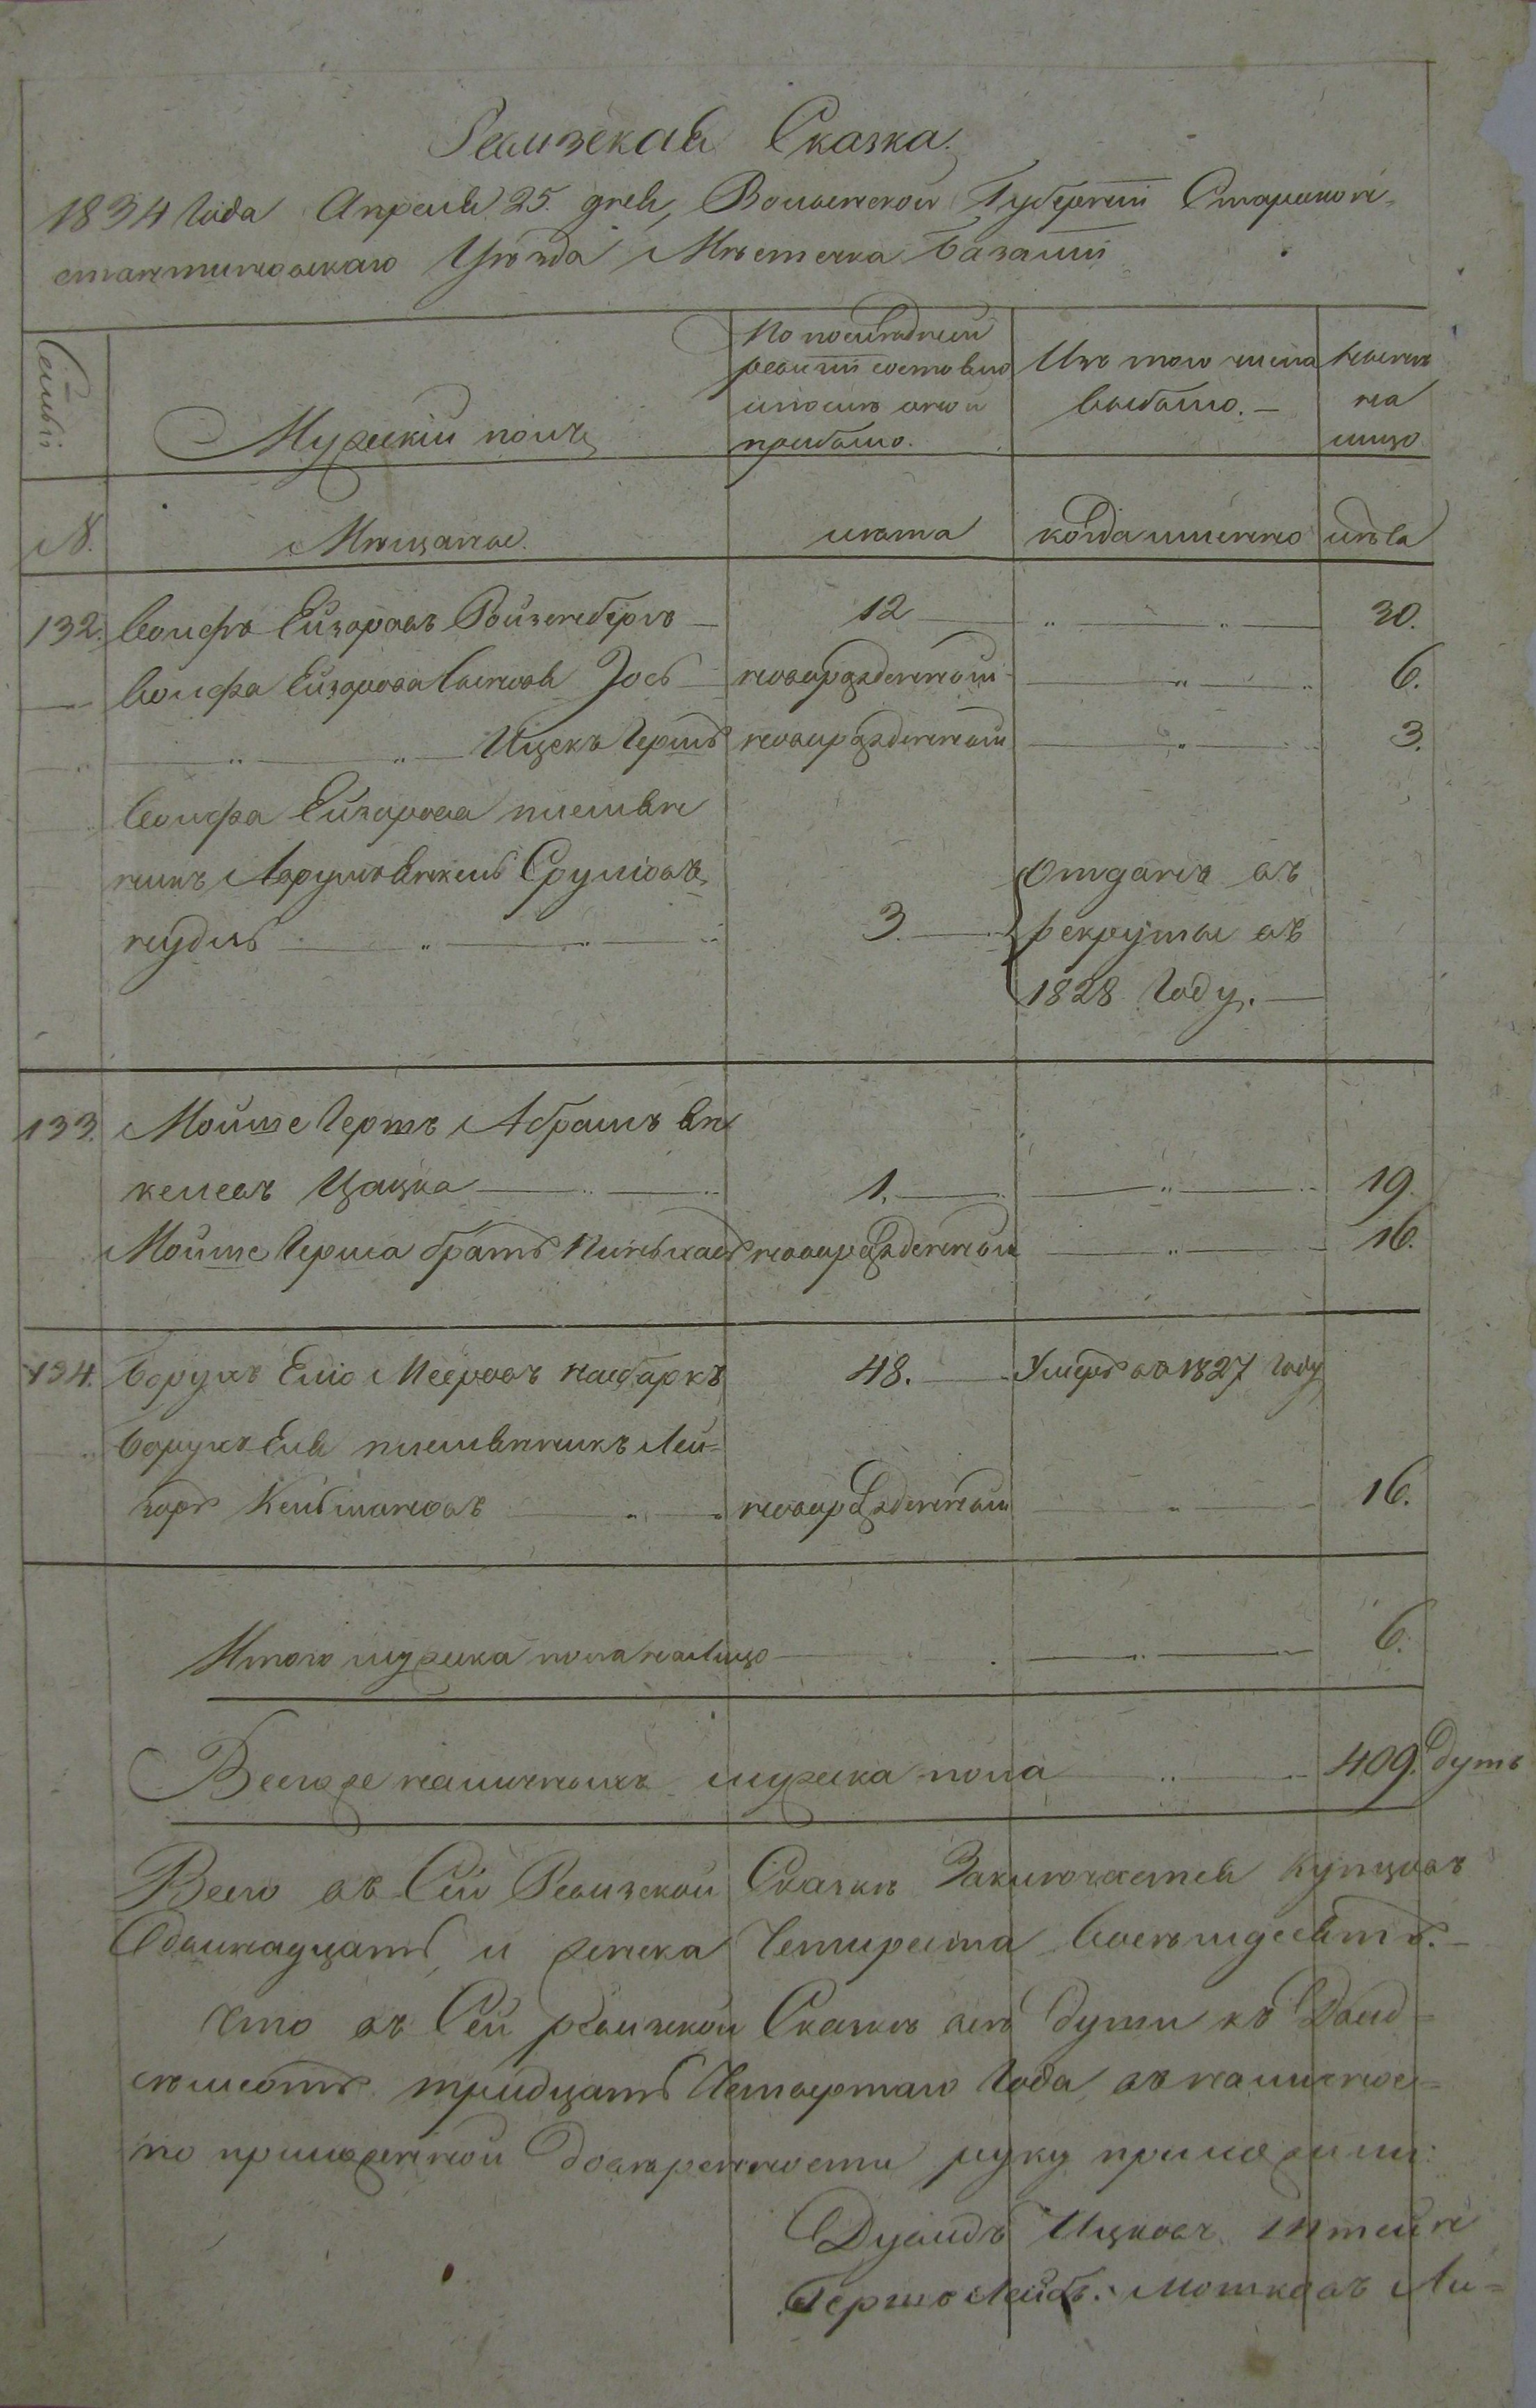 Ревизская Сказка.
1834 Года Апреля 25. дня, Волынской Губернiи Старокон-
стантиновскаго Уѣзда Мѣстечка Базалiи
Семьи
Мужескiй полъ
По последней
ревизiи состояло
и после оной
прибыло.
Изъ того числа
выбыло. —
ныне
на
лицо
N.
Мѣщане.
лѣта
когда именно
лѣта
132. Волфъ Ейзоровъ Ройзенберъ — 12 — „ — „ — 30.
Волфа Ейзорова Сыновя Зось — новорожденный — „ — „ 6.
„ — „ — „ — Ицекъ Гершъ новорожденный — „ — „ 3.
Волфа Ейзорова племян
никъ Сруліовъ
нудль — „ — „ — „ 3. —
Отданъ въ
рекруты въ
1828 Году. —
133. Мойше Гершъ Абрамъ Ян
келевъ Цацка — „ — „ 1. — „ — „ — „ 19.
Мойше Герша братъ Пинькасъ новорожденный — „ — 16.
134. Борухъ Еліо Мееровъ 48. — Умеръ въ 1827 году
Борухъ Еля племянникъ Лей-
зоръ Кельмановъ — „ — новорожденный — „ — 16.
Итого мужеска пола налицо — . — „ — 6.
Всего же наличныхъ мужеска пола — „ — 409. душъ
Всего въ Сей Ревизской Сказкѣ Заключается купцовъ
Одинадцать, и женска Четиреста Восемдесятъ. —
Что въ Сей ревизской Сказкѣ всѣ души къ
тридцать Четвертаго Года въ наличнос-
по приложенной довѣренности руку приложили:
Дувидъ Ицковъ Штейн
Гершо Лейбъ. Мошковъ Ли-